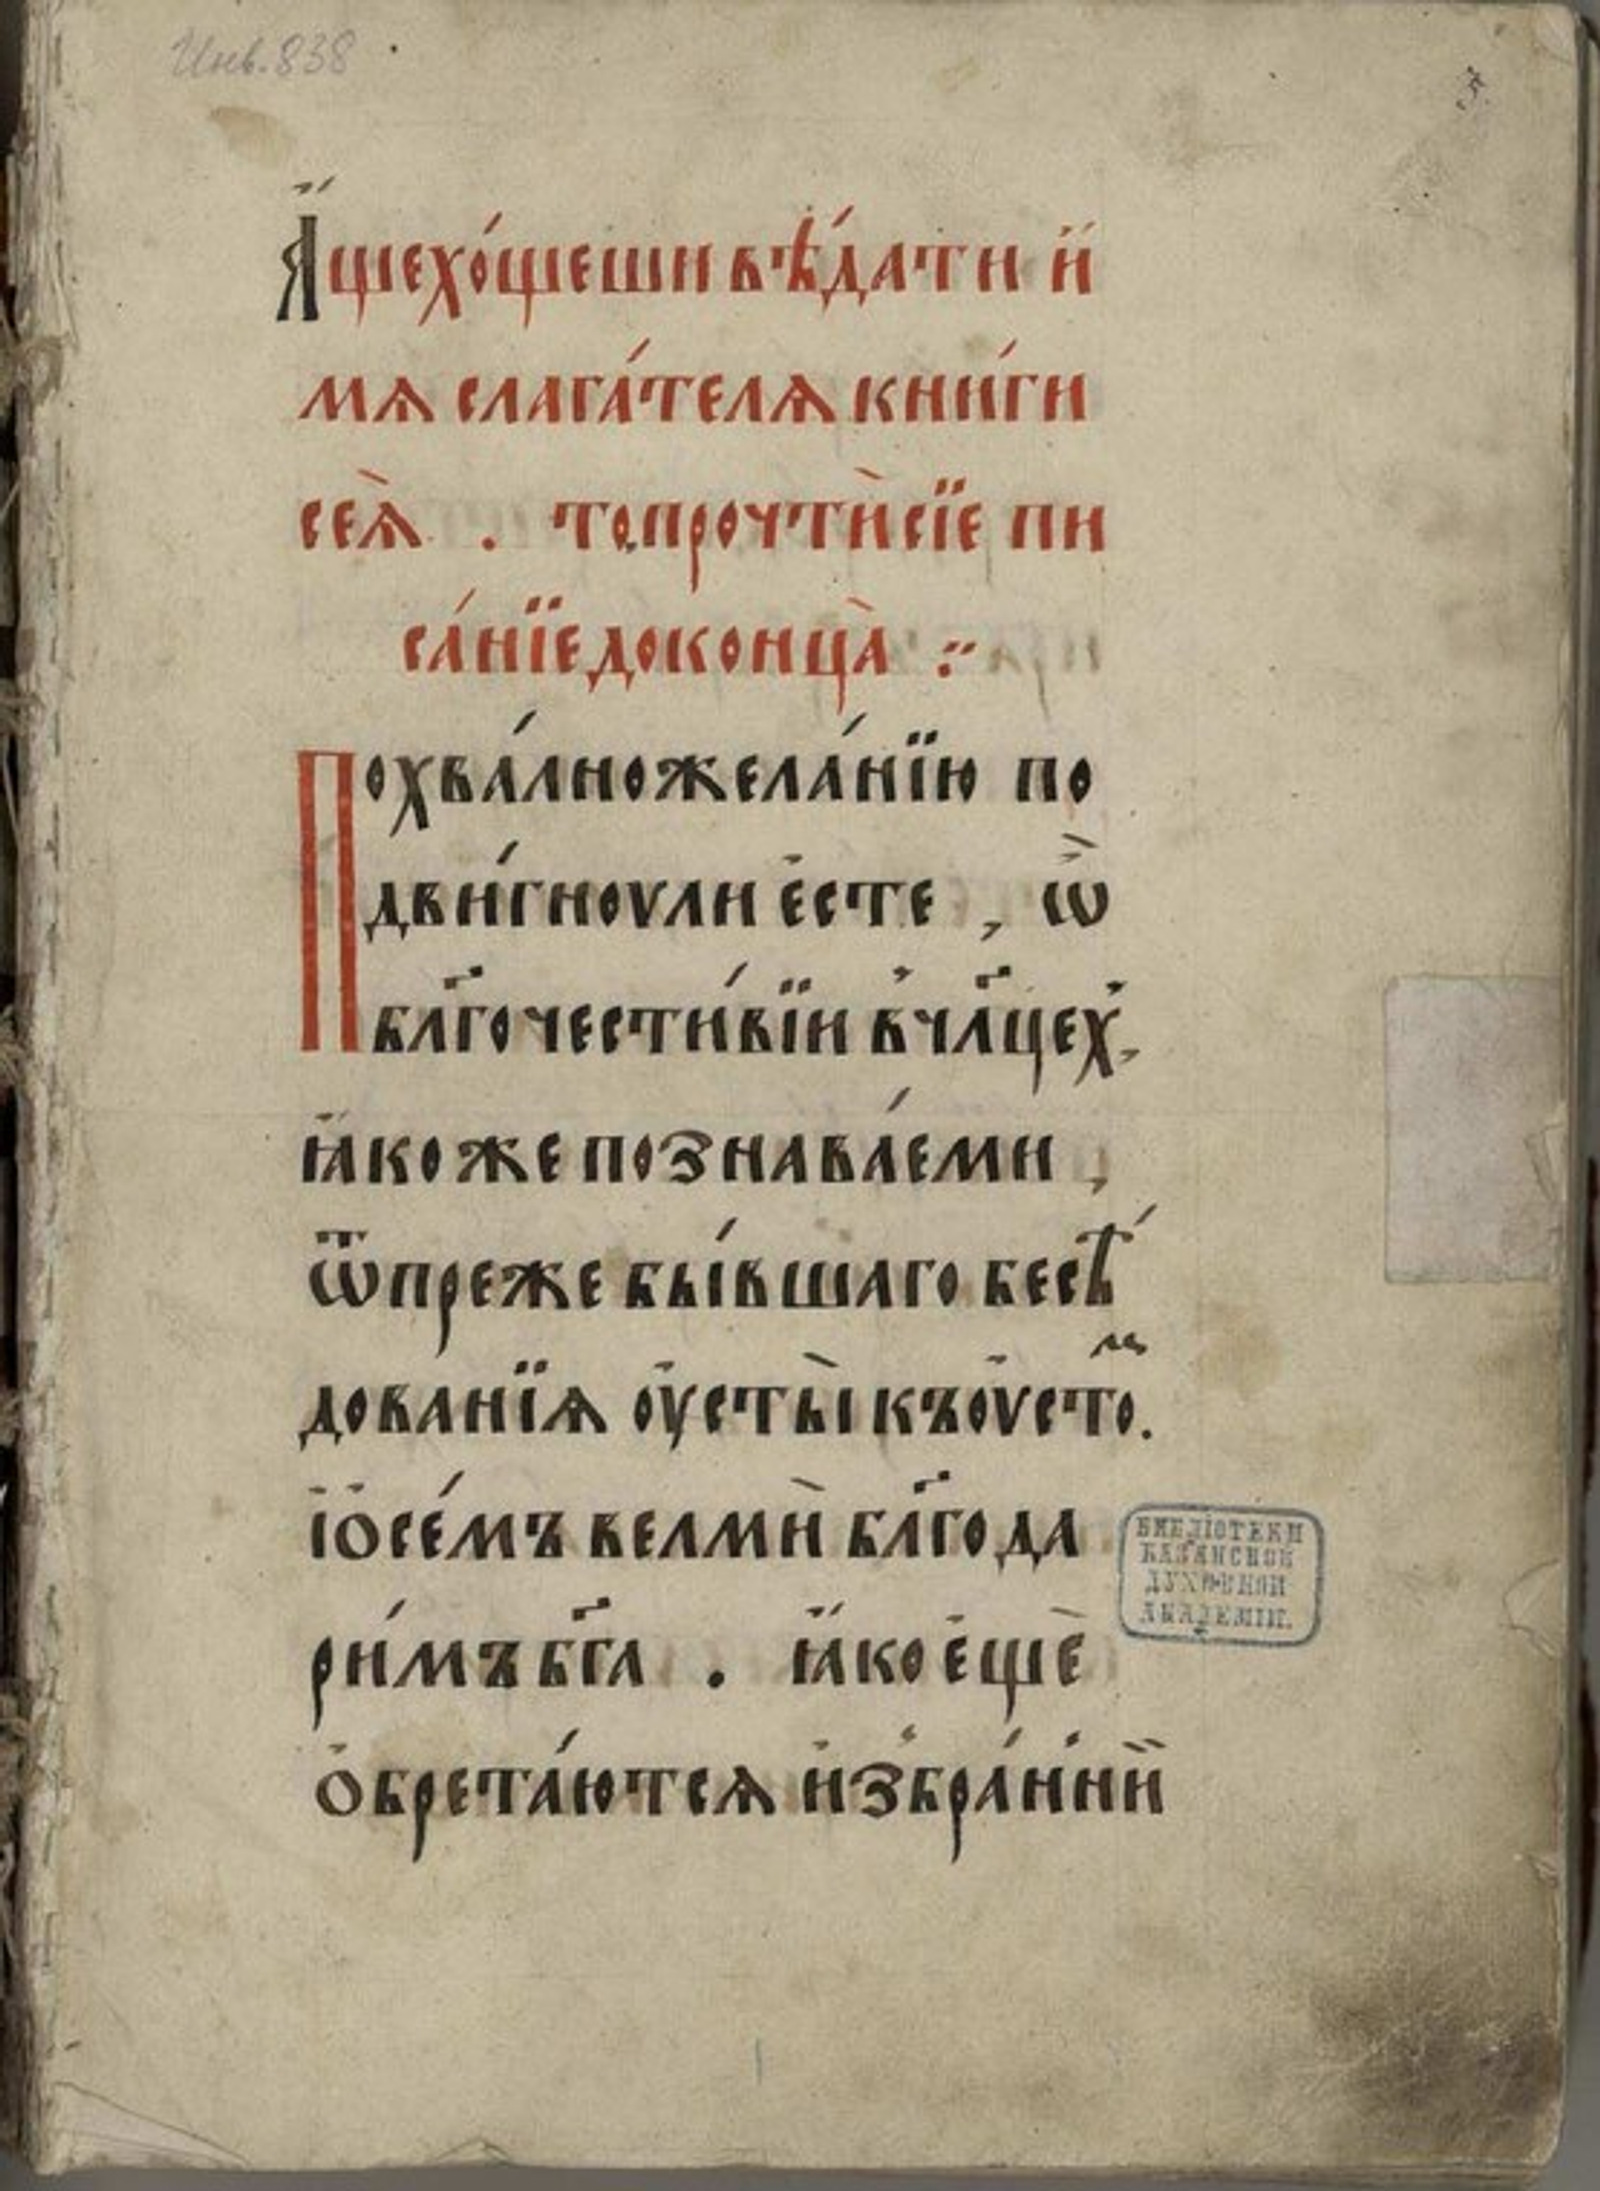 Инв. 838
А҆́ще хо́щеши вѣ́дати и҆́
мѧ слага́телѧ кни́ги
сеѧ̀ . то прочтѝ сїе пи
са́нїе до конца̀ :~
Похва́лно жела́нїю по
дви́гноули є҆сте , ѽ
бл҃гочести́вїи в̾ чл҃цех̾,
ꙗ҆́коже познава́еми ,
ѿ преже бы́вшаго бесѣ́
дованїѧ оу҆сты̀ къ оу҆стоⷨ.
і҆ о҆ се́мъ велмѝ бл҃года
ри́мъ бг҃а . ꙗ҆́ко є҆щѐ
о҆брета́ютсѧ и҆з̾бра́н̾нїи
БИБЛІОТЕКИ
КАЗАНСКОЙ
ДУХОВНОЙ
АКАДЕМІИ.